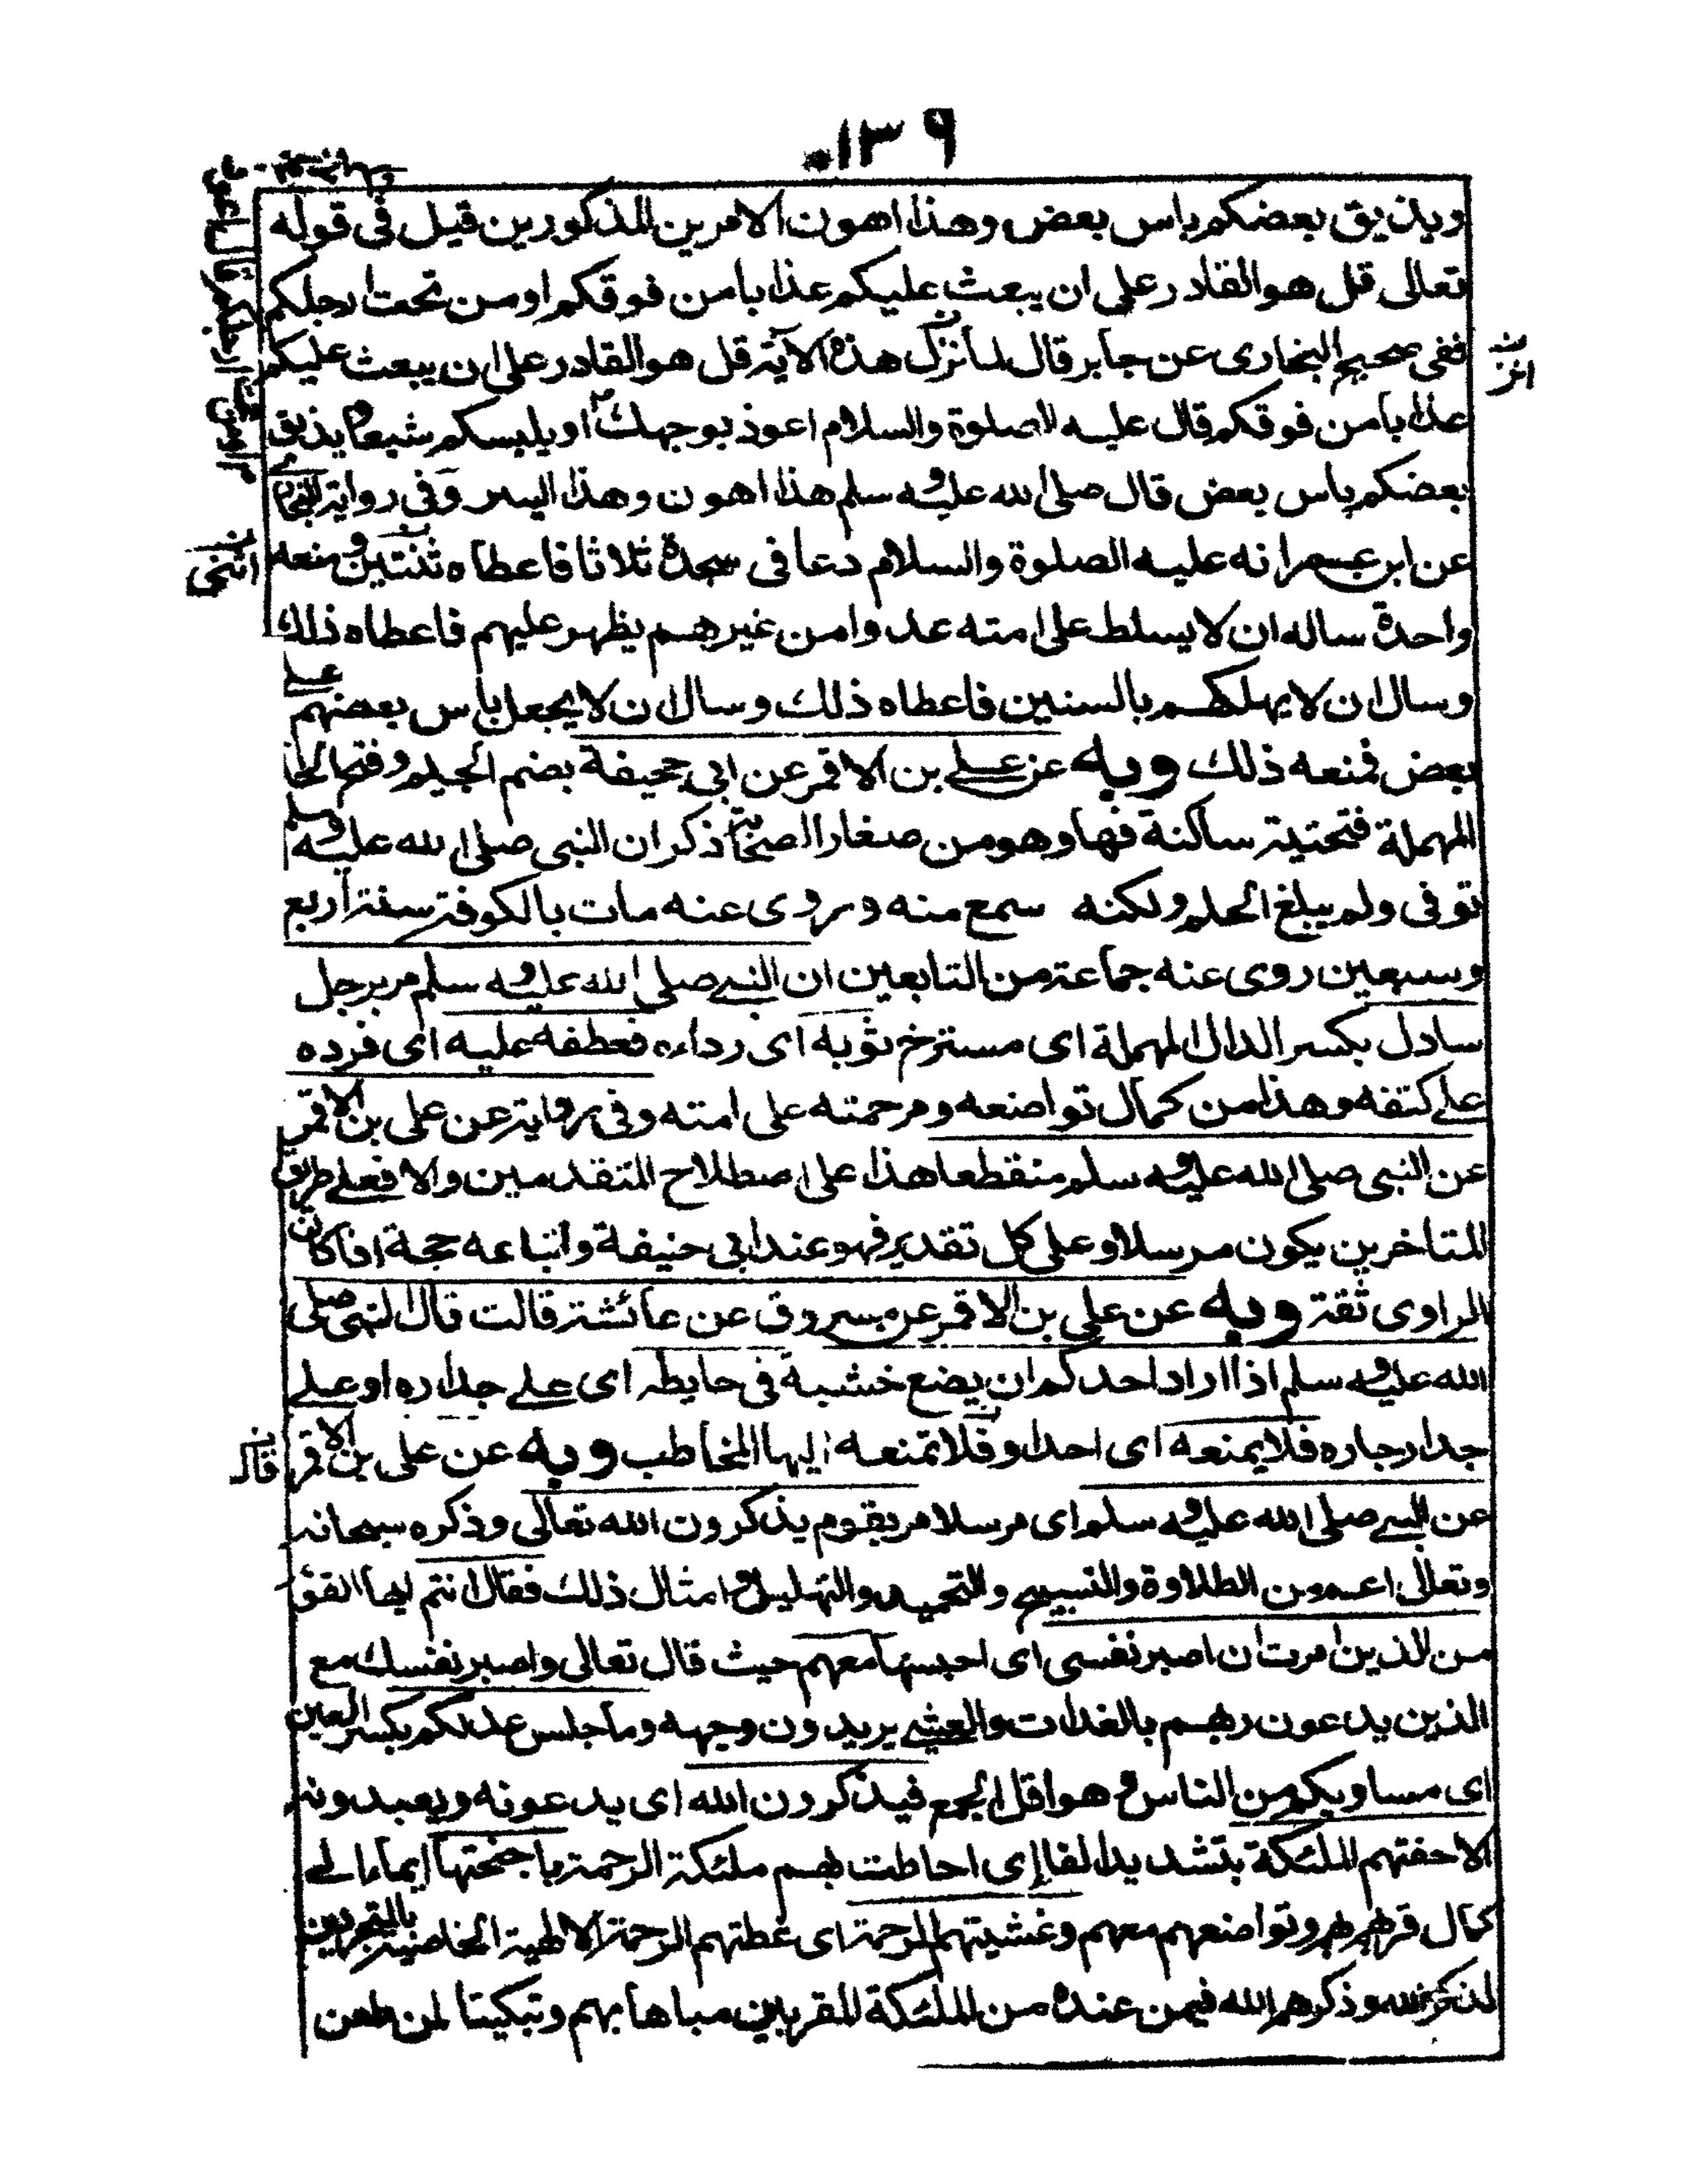 ١٣٩
ويذيق بعضكم باس بعض وهذا اهون الامرين المذكورين قيل في قوله
تعالى قل هو القادر على ان يبعث عليكم عذابا من فوقكم او من تحت ارجلكم
ففي صحيح البخارى عن جابر قال لما نزلت هذه الآية قل هو القادر على ان يبعث عليكم
عذابا من فوقكم قال عليه الصلوة والسلام اعوذ بوجهك او يلبسكم شيعا ويذيق
بعضكم باس بعض قال صلى الله عليه وسلم هذا اهون وهذا ايسر وفي رواية
عن ابن عمر انه عليه الصلوة والسلام دعا في سجدة ثلاثا فاعطاه ثنتين ومنعه
واحدة ساله ان لا يسلط على امته عدوا من غيرهم يظهر عليهم فاعطاه ذلك
وسال ان لا يهلكهم بالسنين فاعطاه ذلك وسال ان لا يجعل باس بعضهم على
بعض فمنعه ذلك وبه عن علي بن الاقمر عن ابي جحيفة بضم الجيم وفتح الحا
المهملة فتحتية ساكنة فها وهو من صغار الصحابة ذكر ان النبي صلى الله عليه وسلم
توفى ولم يبلغ الحلم ولكنه سمع منه وروى عنه مات بالكوفة سنة اربع
وسبعين روى عنه جماعة من التابعين ان النبي صلى الله عليه وسلم مر برجل
سادل بكسر الدال المهملة اى مسترخ ثوبه اى رداءه فعطفه عليه اى فرده
على كتفه وهذا من كمال تواضعه ومرحمته على امته وفي رواية عن علي بن الاقمر
عن النبي صلى الله عليه وسلم منقطعا هذا على اصطلاح المتقدمين والا فعلى طريق
المتاخرين يكون مرسلا وعلى كل تقدير فهو عند ابي حنيفة واتباعه حجة اذا كان
الراوى ثقة وبه عن علي بن الاقمر عن مسروق عن عائشة قالت قال النبي صلى
الله عليه وسلم اذا اراد احدكم ان يضع خشبة في حايطه اى على جداره او على
جدار جاره فلا يمنعه اى احدا وفلا تمنعه ايها المخاطب وبه عن علي بن الاقمر
قال
عن النبي صلى الله عليه وسلم اى مرسلا مر بقوم يذكرون الله تعالى وذكره سبحانه
وتعالى اعم من الطلاوة والتسبيح والتحميد والتهليل وامثال ذلك فقال انتم ايها القوم
من الذين امرت ان اصبر نفسى اى احبسها معهم حيث قال تعالى واصبر نفسك مع
الذين يدعون ربهم بالغدات والعشي يريدون وجهه وما جلس عدلكم بكسر العين
اى مساويكم من الناس وهو اقل الجمع فيذكرون الله اى يدعونه ويعبدونه
الا حفتهم الملئكة بتشديد الفا اى احاطت بهم ملئكة الرحمة باجنحتها ايماء الى
كمال قربهم وتواضعهم معهم وغشيتهم الرحمة اى غطتهم الرحمة الالهية الخاصة
لذكر الله وذكرهم الله فيمن عنده من الملئكة المقربين مباها بهم وتبكيتا لمن طعن